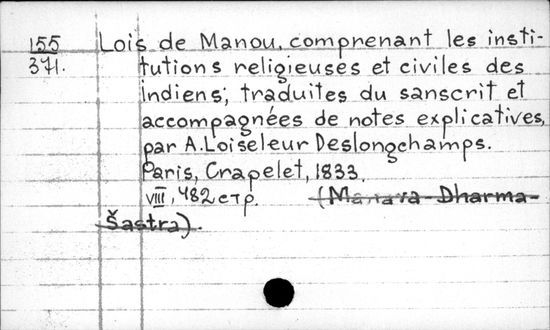 155 Lois de Manou, comprenant les insti-
371. tutions religieuses et civiles des
indiens; traduites du sanscrit et
accompagnées de notes explicatives,
par A. Loiseleur Deslongchamps.
Paris, Crapelet, 1833.
VIII, 482 стр. (Manava-Dharma-
Šastra).